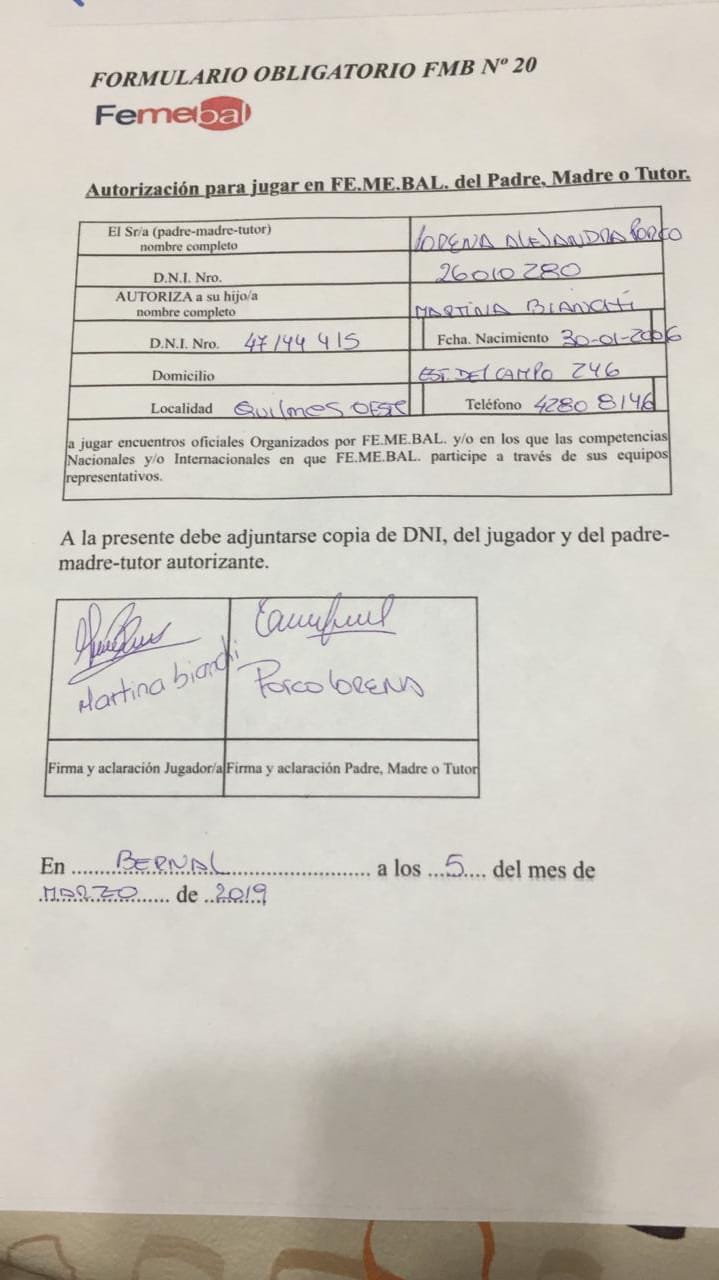 FORMULARIO OBLIGATORIO FMB Nº 20
Femebal
Autorización para jugar en FE.ME.BAL. del Padre, Madre o Tutor.
El Sr/a (padre-madre-tutor)
nombre completo
LORENA ALEJANDRA PORCO
D.N.I. Nro.
26010280
AUTORIZA a su hijo/a
nombre completo
MARTINA BIANCHI
D.N.I. Nro. 47144415 Fcha. Nacimiento 30-01-2006
Domicilio EST. DEL CAMPO 246
Localidad QUILMES OESTE Teléfono 4280 8146
a jugar encuentros oficiales Organizados por FE.ME.BAL. y/o en los que las competencias
Nacionales y/o Internacionales en que FE.ME.BAL. participe a través de sus equipos
representativos.
A la presente debe adjuntarse copia de DNI, del jugador y del padre-
madre-tutor autorizante.
Martina bianchi
Porco LORENA
Firma y aclaración Jugador/a Firma y aclaración Padre, Madre o Tutor
En ........BERNAL........................ a los ...5.... del mes de
.MARZO...... de ..2019